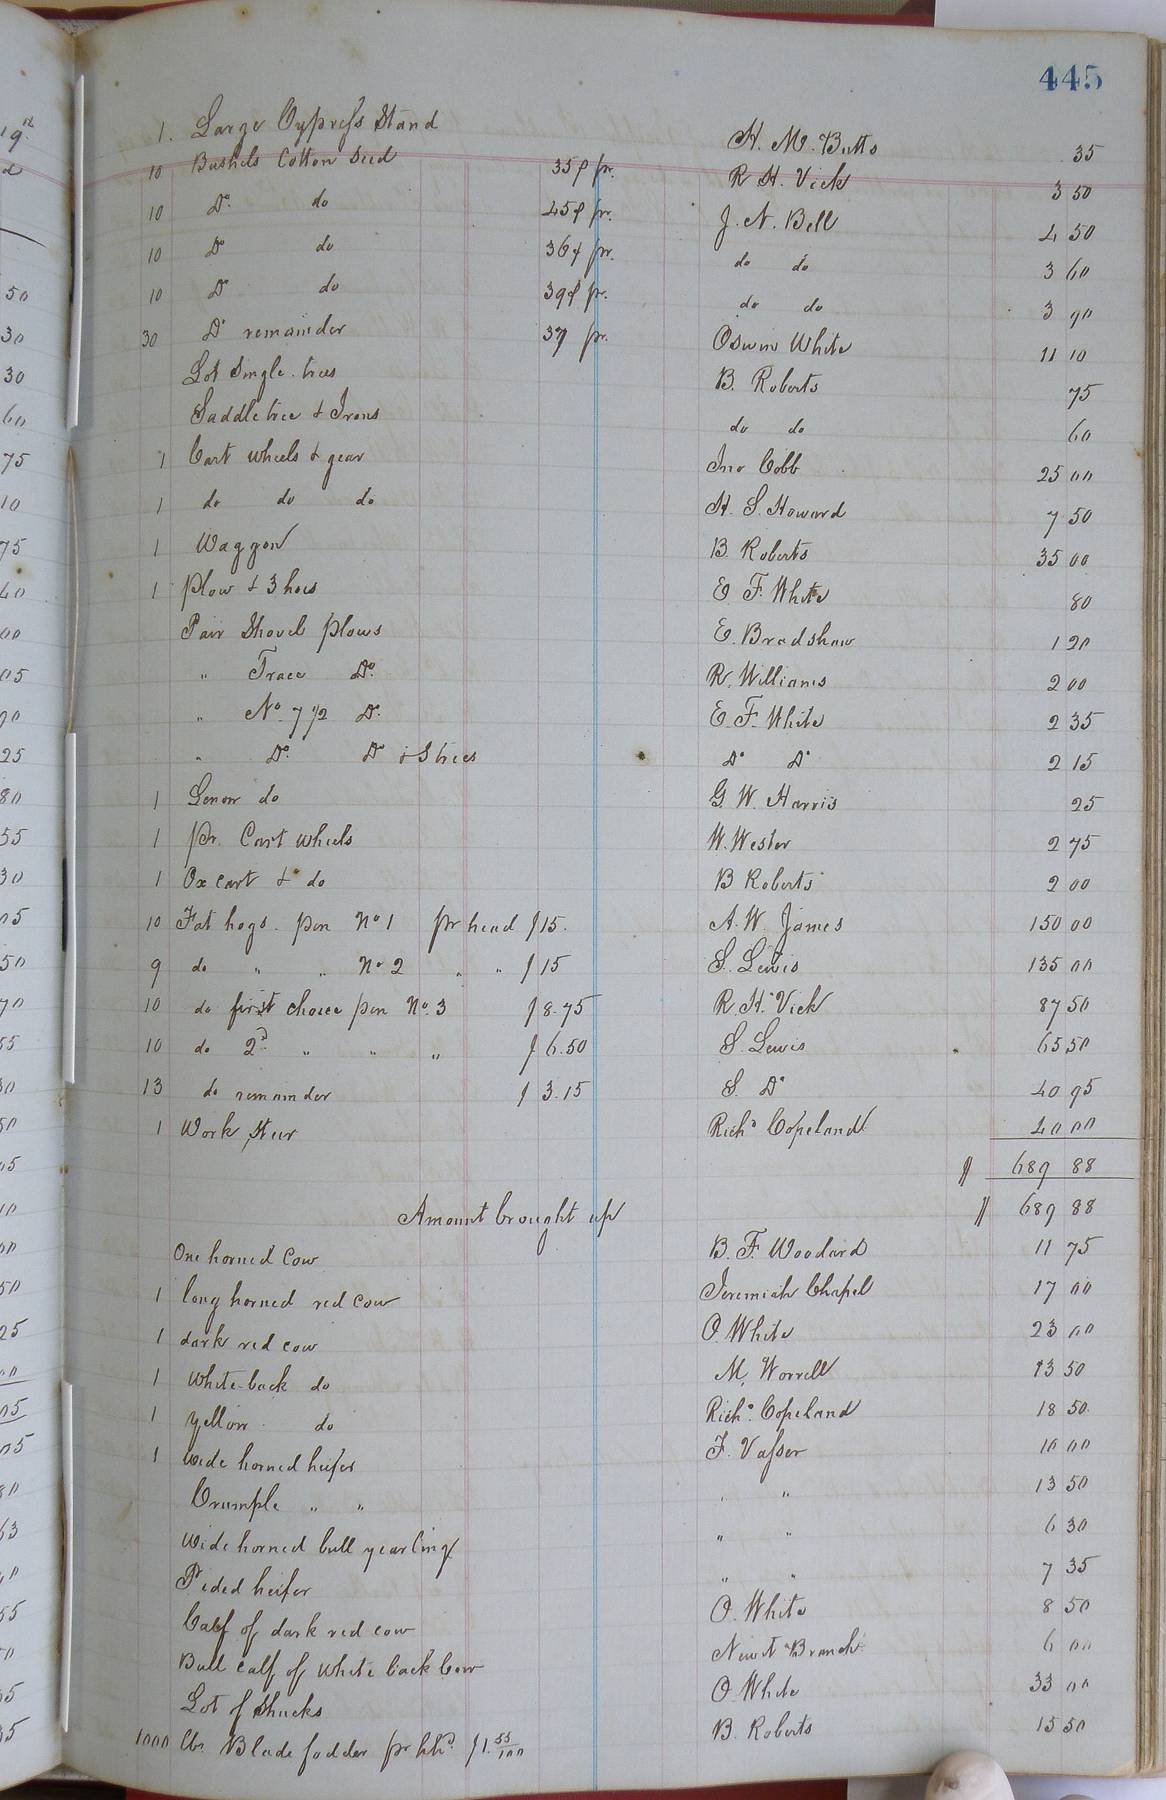 445
1. Large Cypress Stand H. M. Butts 35
10 Bushels Cotton Seed 35¢ pr. R H. Vick 3 50
10 Do. do 45¢ pr. J. N. Bell 4 50
10 Do do 36¢ pr. do do 3 60
10 Do do 39¢ pr. do do 3 90
30 Do remainder 37 pr. Oswin White 11 10
Lot Single-trees B. Roberts 75
Saddle tree & Irons do do 60
1 Cart wheels & gear Jno Cobb 25 00
1 do do do H. S. Howard 7 50
1 Waggon B. Roberts 35 00
1 Plow & 3 hoes E. F. White 80
Pair Shovel Plows E. Bradshaw 1 20
" Trace Do. R. Williams 2 00
" No. 7 1/2 Do. E. F. White 2 35
" Do. Do & S trees Do Do 2 15
1 do G. W. Harris 25
1 pr. Cart wheels W. Wester 2 75
1 Ox cart & do B Roberts 2 00
10 Fat hogs. pen No 1 pr head $15. A. W. James 150 00
9 do " " No 2 " " $15 S. Lewis 135 00
10 do first choice pen No. 3 $8.75 R. H. Vick 87 50
10 do 2d " " " $6.50 S. Lewis 65 50
13 do remainder $3.15 S. Do 40 95
1 Work Steer Richd Copeland 40 00
$ 689 88
Amount brought up $ 689 88
One horned Cow B. F. Woodard 11 75
1 long horned red cow Jeremiah Chapel 17 00
1 dark red cow O. White 23 00
1 White-back do M. Worrell 13 50
1 yellow do Richd. Copeland 18 50
1 wide horned heifer F. Vasser 10 00
Crumple " " " " 13 50
Wide horned bull yearling " " 6 30
Pided heifer " " 7 35
Calf of dark red cow O. White 8 50
Bull calf of White back Cow Newit Branch 6 00
Lot of Shucks O White 33 00
1000 lbs Blade fodder pr hhd $1.55/100 B. Roberts 15 50